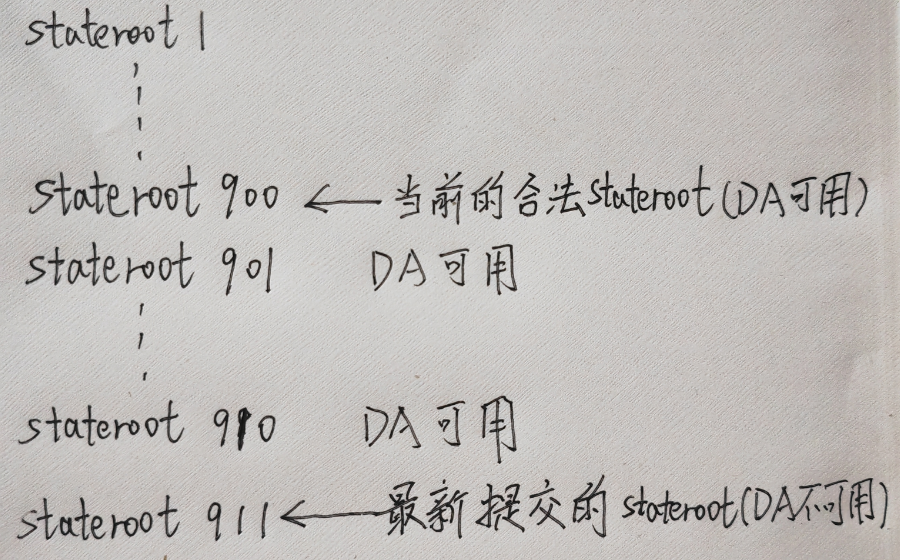 stateroot 1
stateroot 900 ← 当前的合法stateroot(DA可用)
stateroot 901 DA可用
stateroot 910 DA可用
stateroot 911 ← 最新提交的 stateroot(DA不可用)